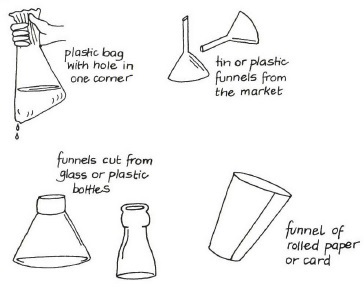 plastic bag
with hole in
one corner
tin or plastic
funnels from
the market
funnels cut from
glass or plastic
bottles
funnel of
rolled paper
or card